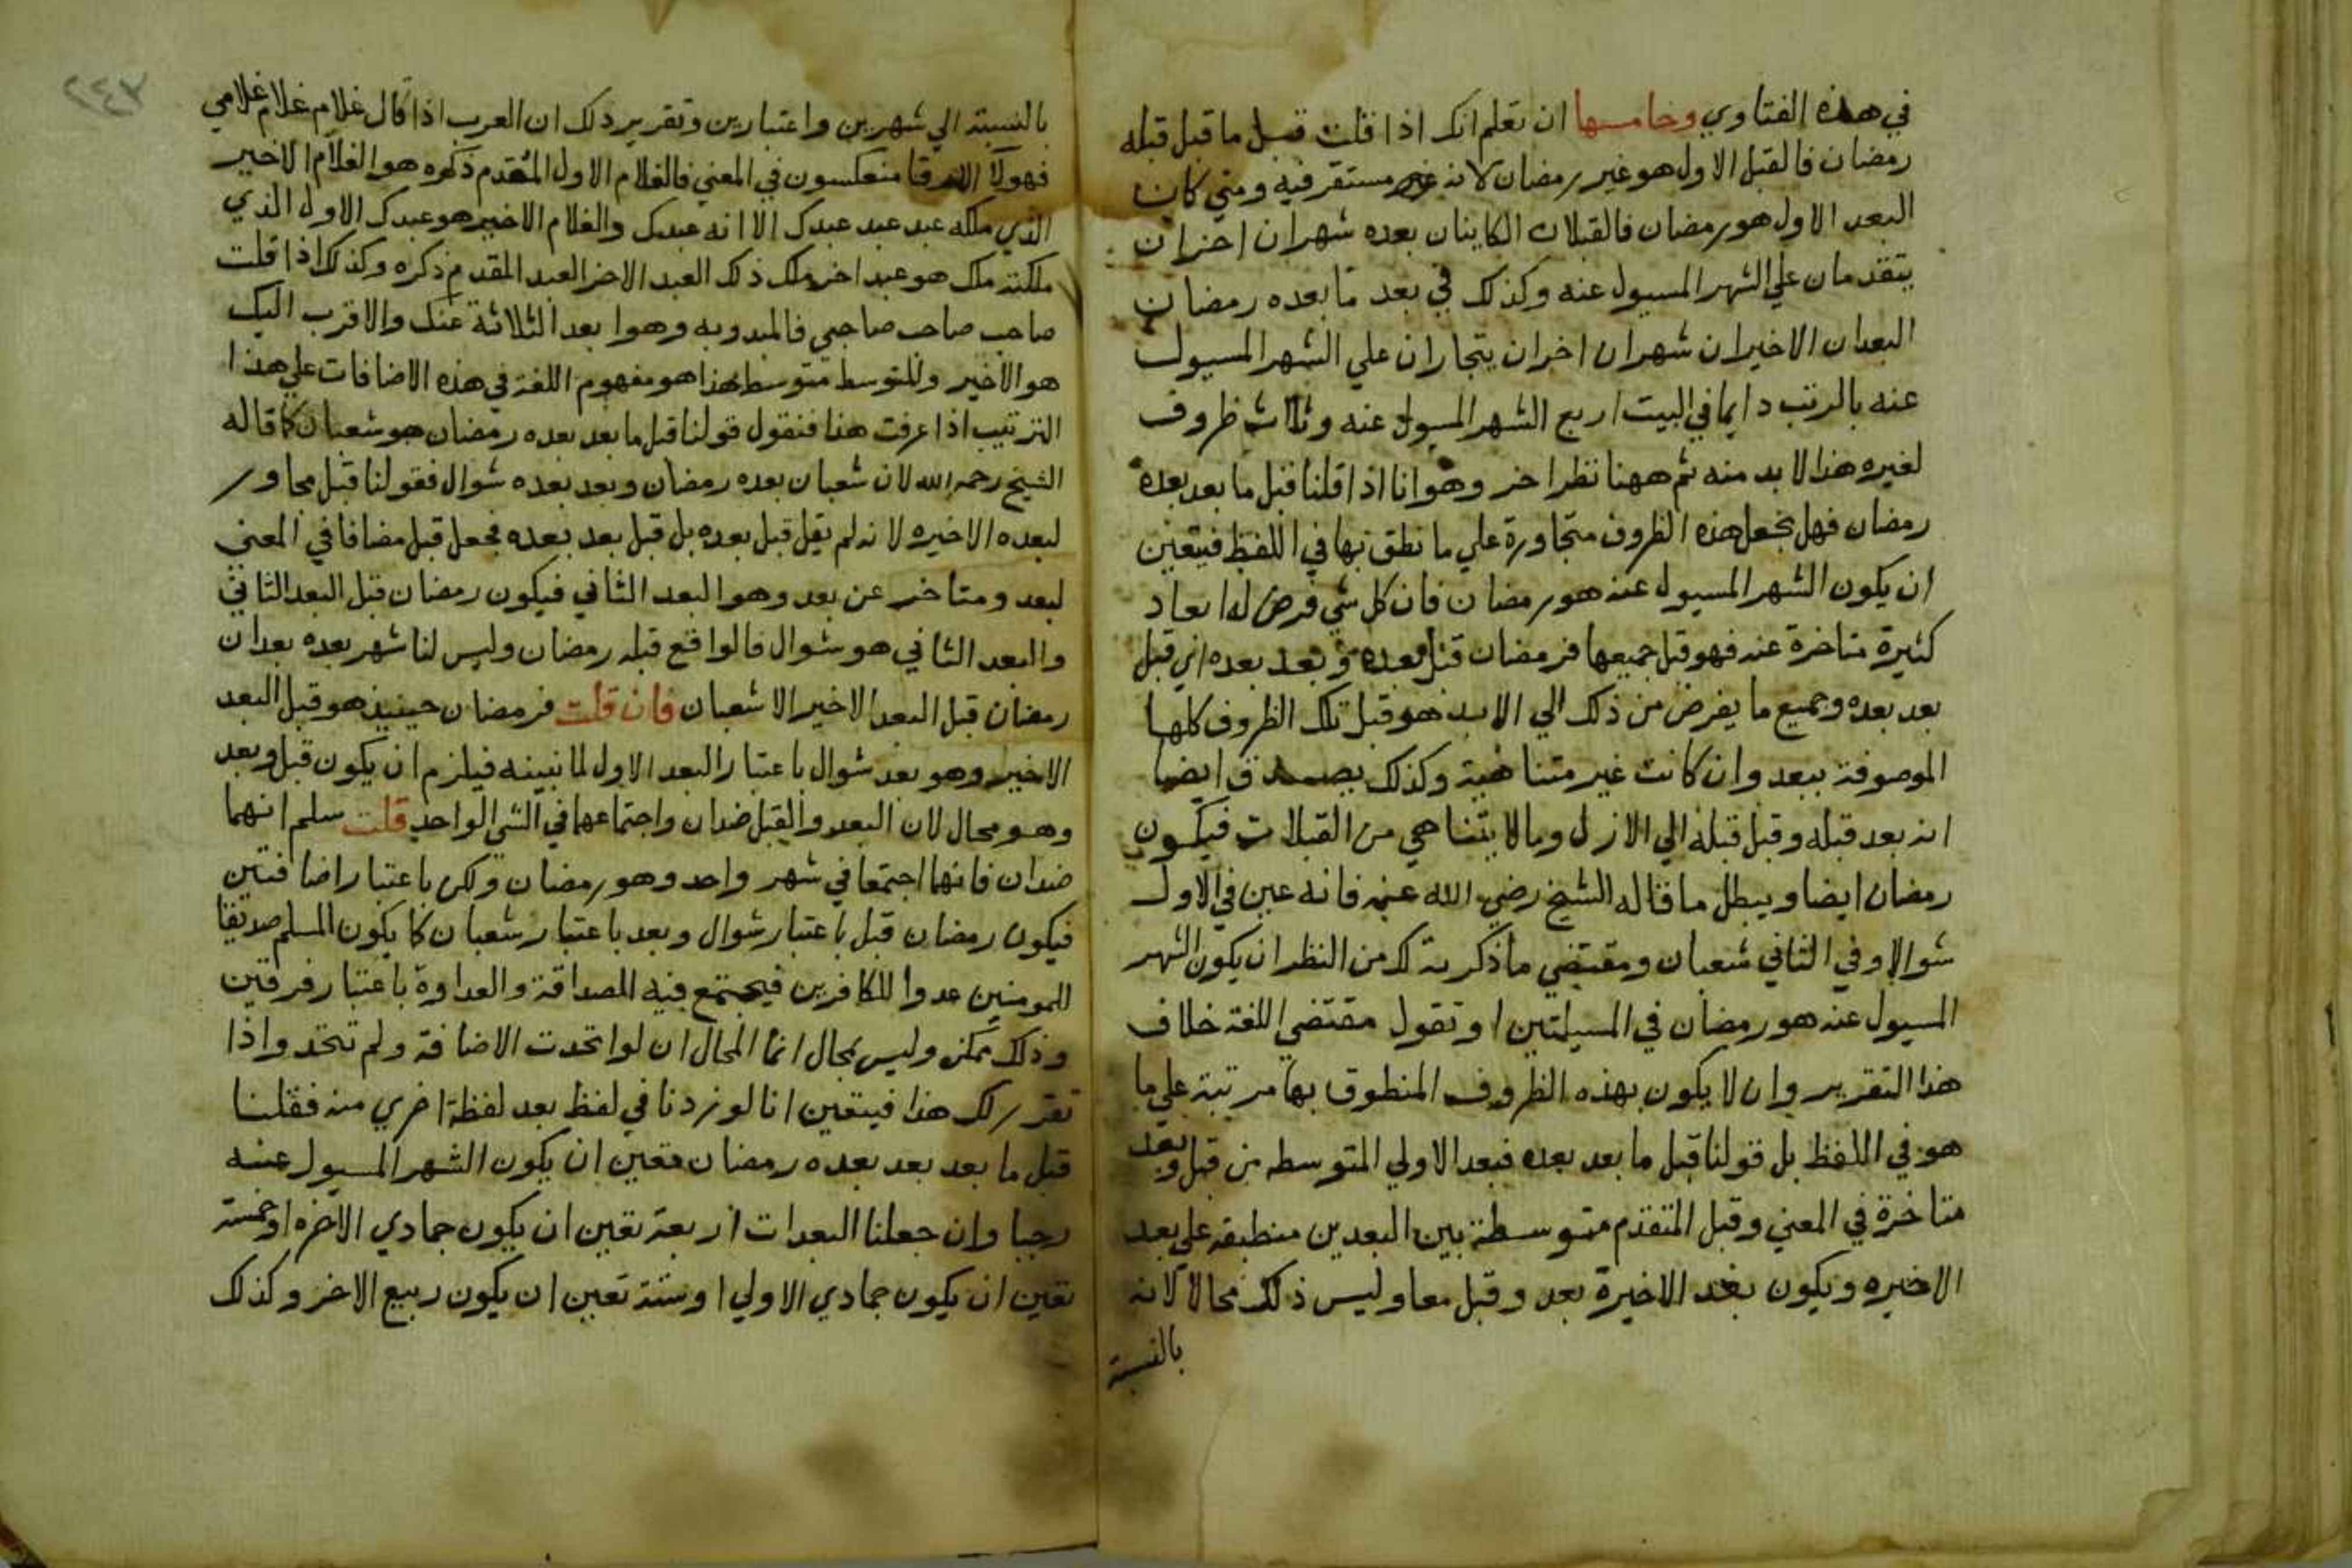 في هذه الفتاوي وخامسها ان تعلم انك اذا قلت قبل ما قبل قبله
رمضان فالقبل الاول هو غير رمضان لانه مستقر فيه ومتي كان
البعد الاول هو رمضان فالقبلان الكاينان بعده شهران اخران
يتقدمان علي الشهر المسيول عنه وكذلك في بعد ما بعده رمضان
البعدان الاخيران شهران اخران يتجاران علي الشهر المسيول
عنه بالرتب دايما في البيت اربع الشهر المسيول عنه وثلاث ظروف
لغيره هذا لا بد منه ثم ههنا نظر اخر وهو انا اذا قلنا قبل ما بعد بعده
رمضان فهل نجعل هذه الظروف متجاورة علي ما نطق بها في اللفظ فيتعين
ان يكون الشهر المسيول عنه هو رمضان فان كل شي فرض له ابعاد
كثيرة متاخرة عنه فهو قبل جميعها فرمضان قبل بعده وبعد بعده اي قبل
بعد بعده وجميع ما يفرض من ذلك الي الابد هو قبل تلك الظروف كلها
الموصوفة ببعد وان كانت غير متناهية وكذلك يصدق ايضا
انه بعد قبله وقبل قبله الي الازل وما لا يتناهي من القبلات فيكون
رمضان ايضا ويبطل ما قاله الشيخ رضي الله عنه فانه عين في الاول
شوالا وفي الثاني شعبان ومقتضي ما ذكرته لك من النظر ان يكون الشهر
المسيول عنه هو رمضان في المسيلتين او تقول مقتضي اللغة خلاف
هذا التقرير وان لا يكون بهذه الظروف المنطوق بها مرتبة علي ما
هو في اللفظ بل قولنا قبل ما بعد بعده فبعد الاولي المتوسطه من قبل وبعد
متاخرة في المعني وقبل المتقدم متوسطة بين البعدين منطبقه علي بعد
الاخيره ويكون بعد الاخيرة بعد وقبل معا وليس ذلك محالا لانه
بالنسبة
٢٤٣
بالنسبة الي شهرين واعتبارين وتقرير ذلك ان العرب اذا قال غلام غلام غلامي
فهولآ الارقا منعكسون في المعني فالغلام الاول المقدم ذكره هو الغلام الاخير
الذي ملكه عبد عبد عبدك الا انه عبدك والغلام الاخير هو عبدك الاول الذي
ملكته ملك هو عبد اخر ملك ذلك العبد الاخر العبد المقدم ذكره وكذلك اذا قلت
صاحب صاحب صاحبي فالمبدو به وهو ابعد الثلاثة عنك والاقرب اليك
هو الاخير والمتوسط متوسط هذا هو مفهوم اللغة في هذه الاضافات علي هذا
الترتيب اذا عرفت هذا فنقول قولنا قبل ما بعد بعده رمضان هو شعبان كما قاله
الشيخ رحمه الله لان شعبان بعده رمضان وبعد بعده شوال فقولنا قبل مجاور
لبعده الاخيره لانه لم يقل قبل بعده بل قبل بعد بعده فجعل قبل مضافا في المعني
لبعد ومتاخر عن بعد وهو البعد الثاني فيكون رمضان قبل البعد الثاني
والبعد الثاني هو شوال فالواقع قبله رمضان وليس لنا شهر بعده بعدان
رمضان قبل البعد الاخير الا شعبان فان قلت فرمضان حينيذ هو قبل البعد
الاخير وهو بعد شوال باعتبار البعد الاول لما نبينه فيلزم ان يكون قبل وبعد
وهو محال لان البعد والقبل ضدان واجتماعهما في الشي الواحد قلت سلم انهما
ضدان فانهما اجتمعا في شهر واحد وهو رمضان ولكن باعتبار اضافتين
فيكون رمضان قبل باعتبار شوال وبعد باعتبار شعبان كما يكون المسلم صديقا
للمومنين عدوا للكافرين فيجتمع فيه الصداقة والعداوة باعتبار فرقتين
وذلك ممكن وليس بمحال انما المحال ان لو اتحدت الاضافة ولم تتحد واذا
تقرر لك هذا فيتعين انا لو زدنا في لفظ بعد لفظة اخري منه فقلنا
قبل ما بعد بعد بعده رمضان فتعين ان يكون الشهر المسيول عنه
رجبا وان جعلنا البعدات اربعة تعين ان يكون جمادي الاخره او خمسة
تعين ان يكون جمادي الاولي او ستة تعين ان يكون ربيع الاخر وكذلك